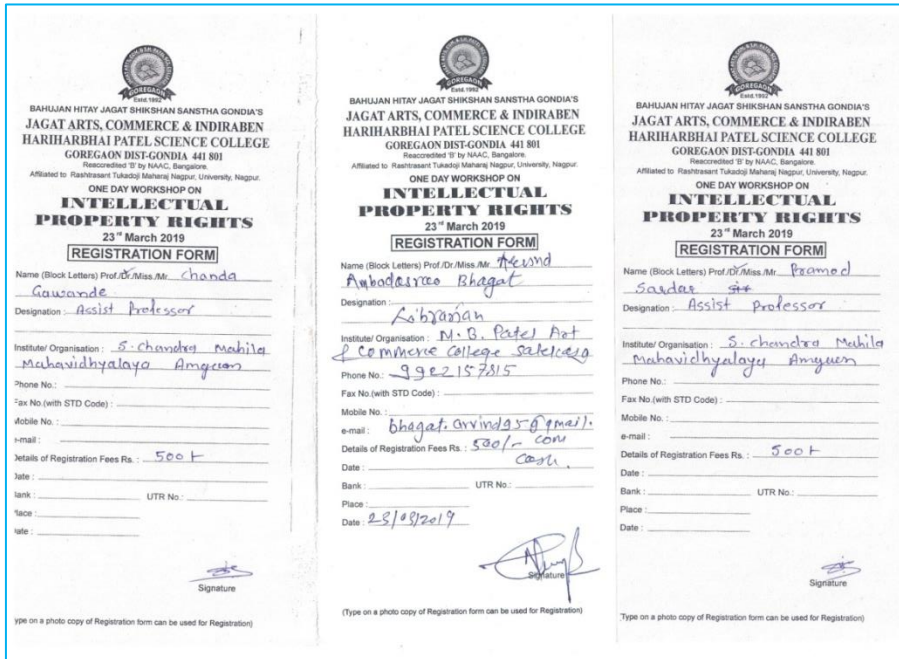 GOREGAON
Estd.1992
BAHUJAN HITAY JAGAT SHIKSHAN SANSTHA GONDIA'S
JAGAT ARTS, COMMERCE & INDIRABEN
HARIHARBHAI PATEL SCIENCE COLLEGE
GOREGAON DIST-GONDIA 441 801
Reaccredited 'B' by NAAC, Bangalore.
Affiliated to Rashtrasant Tukadoji Maharaj Nagpur, University, Nagpur.
ONE DAY WORKSHOP ON
INTELLECTUAL
PROPERTY RIGHTS
23rd March 2019
REGISTRATION FORM
Name (Block Letters) Prof./Dr./Miss./Mr. Chanda
Gawande
Designation : Assist Professor
Institute/ Organisation : S. Chandra Mahila
Mahavidhyalaya Amgaon
Phone No.:
Fax No.(with STD Code) :
Mobile No. :
e-mail :
Details of Registration Fees Rs. : 500/-
Date :
Bank : UTR No.:
Place :
Date :
Signature
ype on a photo copy of Registration form can be used for Registration)
GOREGAON
Estd.1992
BAHUJAN HITAY JAGAT SHIKSHAN SANSTHA GONDIA'S
JAGAT ARTS, COMMERCE & INDIRABEN
HARIHARBHAI PATEL SCIENCE COLLEGE
GOREGAON DIST-GONDIA 441 801
Reaccredited 'B' by NAAC, Bangalore.
Affiliated to Rashtrasant Tukadoji Maharaj Nagpur, University, Nagpur.
ONE DAY WORKSHOP ON
INTELLECTUAL
PROPERTY RIGHTS
23rd March 2019
REGISTRATION FORM
Name (Block Letters) Prof./Dr./Miss./Mr.
Ambadasrao Bhagat
Designation :
Librarian
Institute/ Organisation : M.B. Patel Art
& Commerce College Salekasa
Phone No.: 9902157815
Fax No.(with STD Code) :
Mobile No. :
e-mail : bhagat.arvind95@gmail.
com
Details of Registration Fees Rs. : 500/-
Cash.
Date :
Bank : UTR No.:
Place :
Date : 23/03/2019
Signature
(Type on a photo copy of Registration form can be used for Registration)
GOREGAON
Estd.1992
BAHUJAN HITAY JAGAT SHIKSHAN SANSTHA GONDIA'S
JAGAT ARTS, COMMERCE & INDIRABEN
HARIHARBHAI PATEL SCIENCE COLLEGE
GOREGAON DIST-GONDIA 441 801
Reaccredited 'B' by NAAC, Bangalore.
Affiliated to Rashtrasant Tukadoji Maharaj Nagpur, University, Nagpur.
ONE DAY WORKSHOP ON
INTELLECTUAL
PROPERTY RIGHTS
23rd March 2019
REGISTRATION FORM
Name (Block Letters) Prof./Dr./Miss./Mr. Pramod
Sardar
Designation : Assist Professor
Institute/ Organisation : S. Chandra Mahila
Mahavidhyalaya Amgaon
Phone No.:
Fax No.(with STD Code) :
Mobile No. :
e-mail :
Details of Registration Fees Rs. : 500/-
Date :
Bank : UTR No.:
Place :
Date :
Signature
(Type on a photo copy of Registration form can be used for Registration)